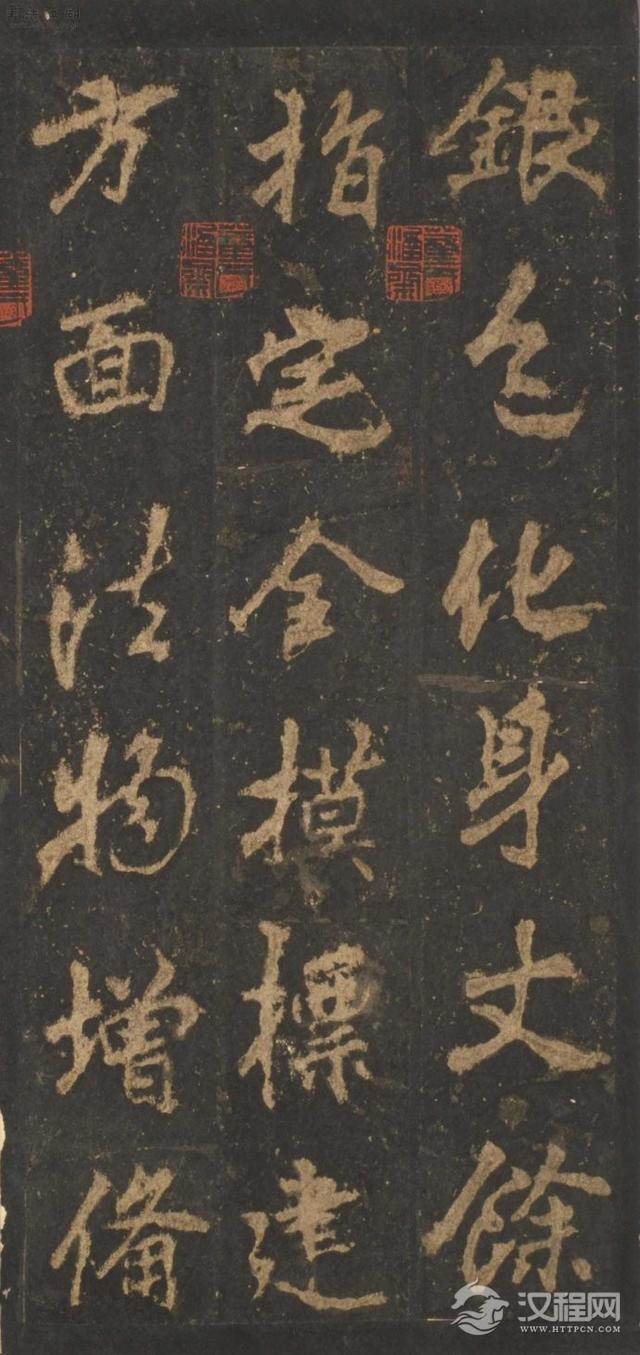 銀色化身丈餘
指定全摸標建
方面法物增備
汉程网
WWW.HTTPCN.COM